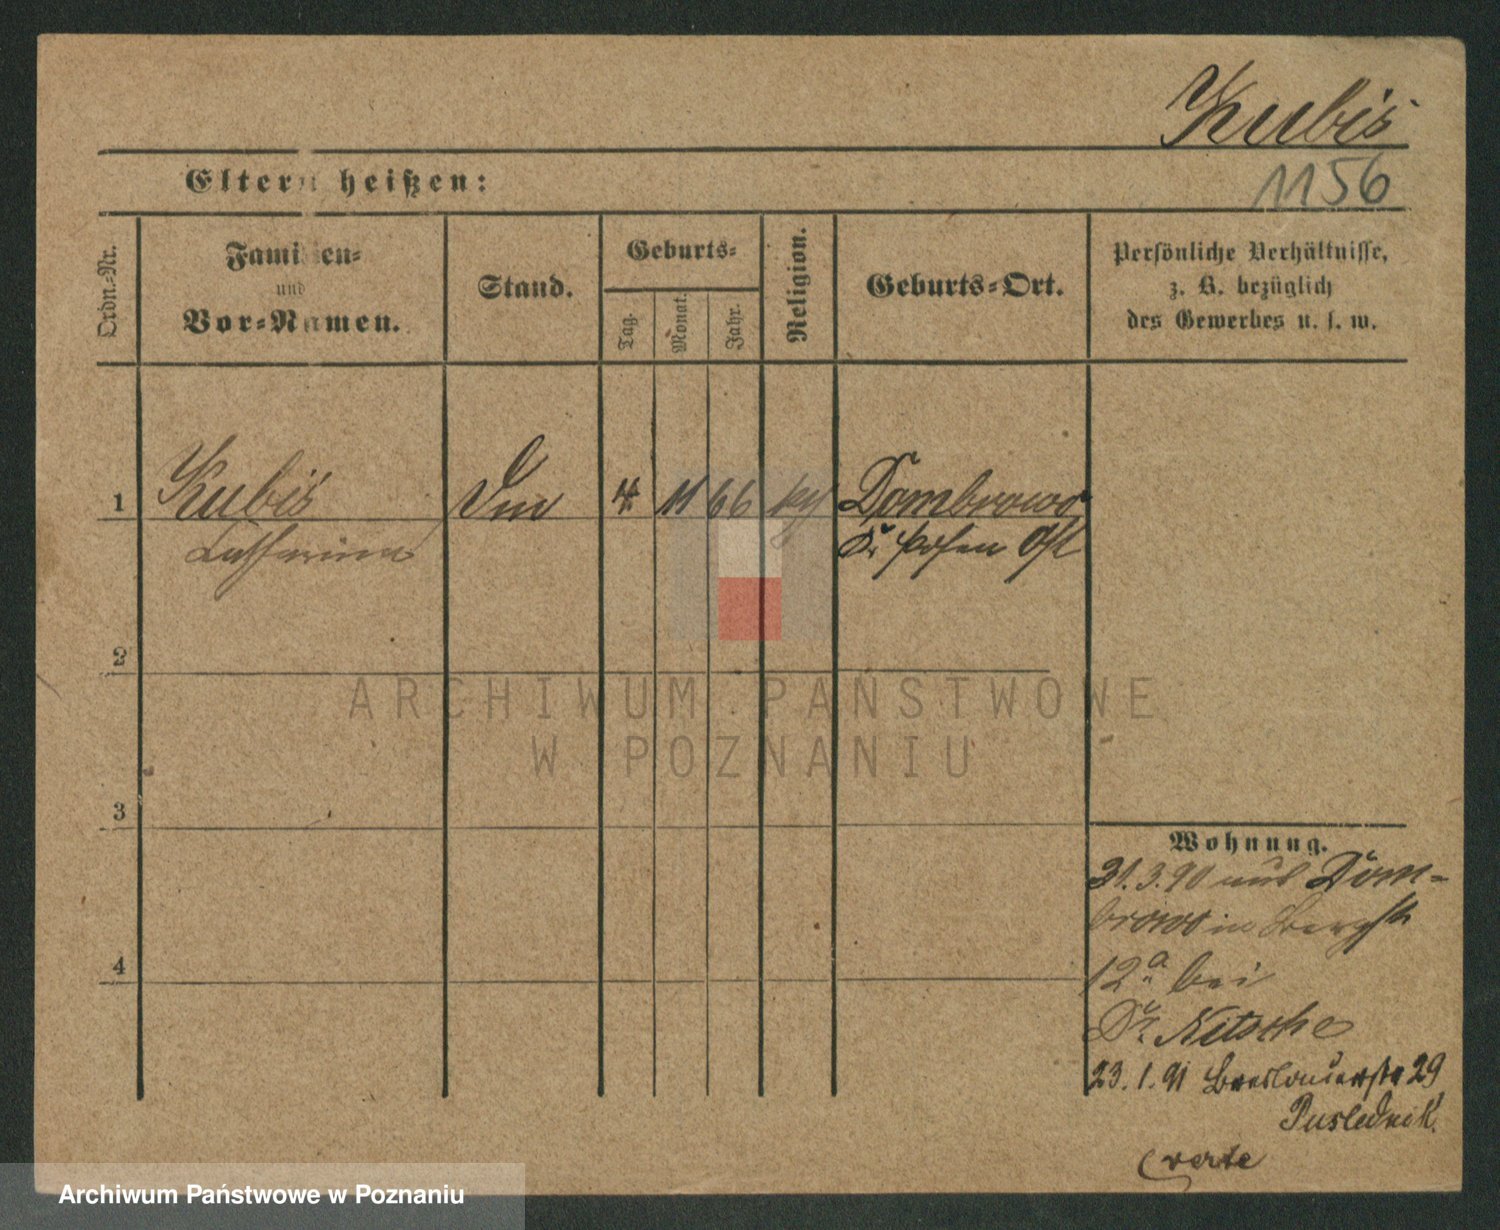 Kubis
1156
Eltern heißen:
Ordn.-Nr.
Familien-
und
Vor-Namen.
Stand.
Geburts-
Tag.
Monat.
Jahr.
Religion.
Geburts-Ort.
Persönliche Verhältnisse,
z. B. bezüglich
des Gewerbes u. s. w.
1 Kubis 4 11 66 Dombrowo
Catharina Kr. Posen Ost
2
ARCHIWUM PAŃSTWOWE
W POZNANIU
3
4
Wohnung.
31.3.90 aus Dom-
browo in Bergstr
12a bei
Dr. Nitsche
23.1.91 Breslauerstr 29
Puslednik.
verte
Archiwum Państwowe w Poznaniu